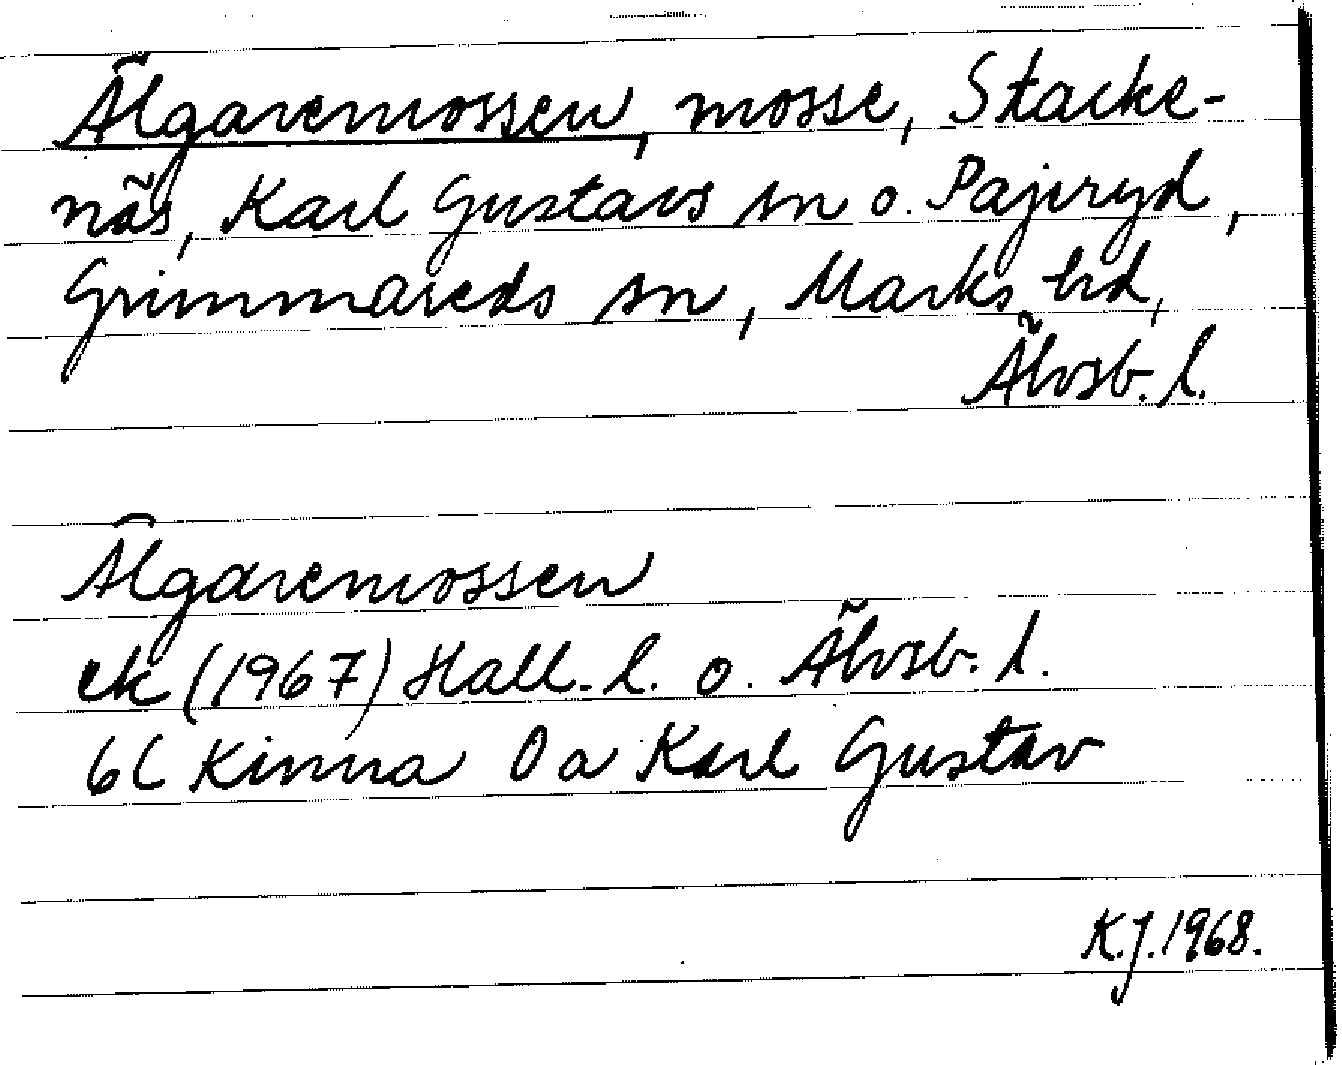 Älgaremossen, mosse, Stacke-
näs, Karl Gustavs sn o. Pajeryd,
Grimmareds sn, Marks hd,
Älvsb. l.
Älgaremossen
ek (1967) Hall. l. o. Älvsb. l.
6C Kinna 0a Karl Gustav
K.J. 1968.